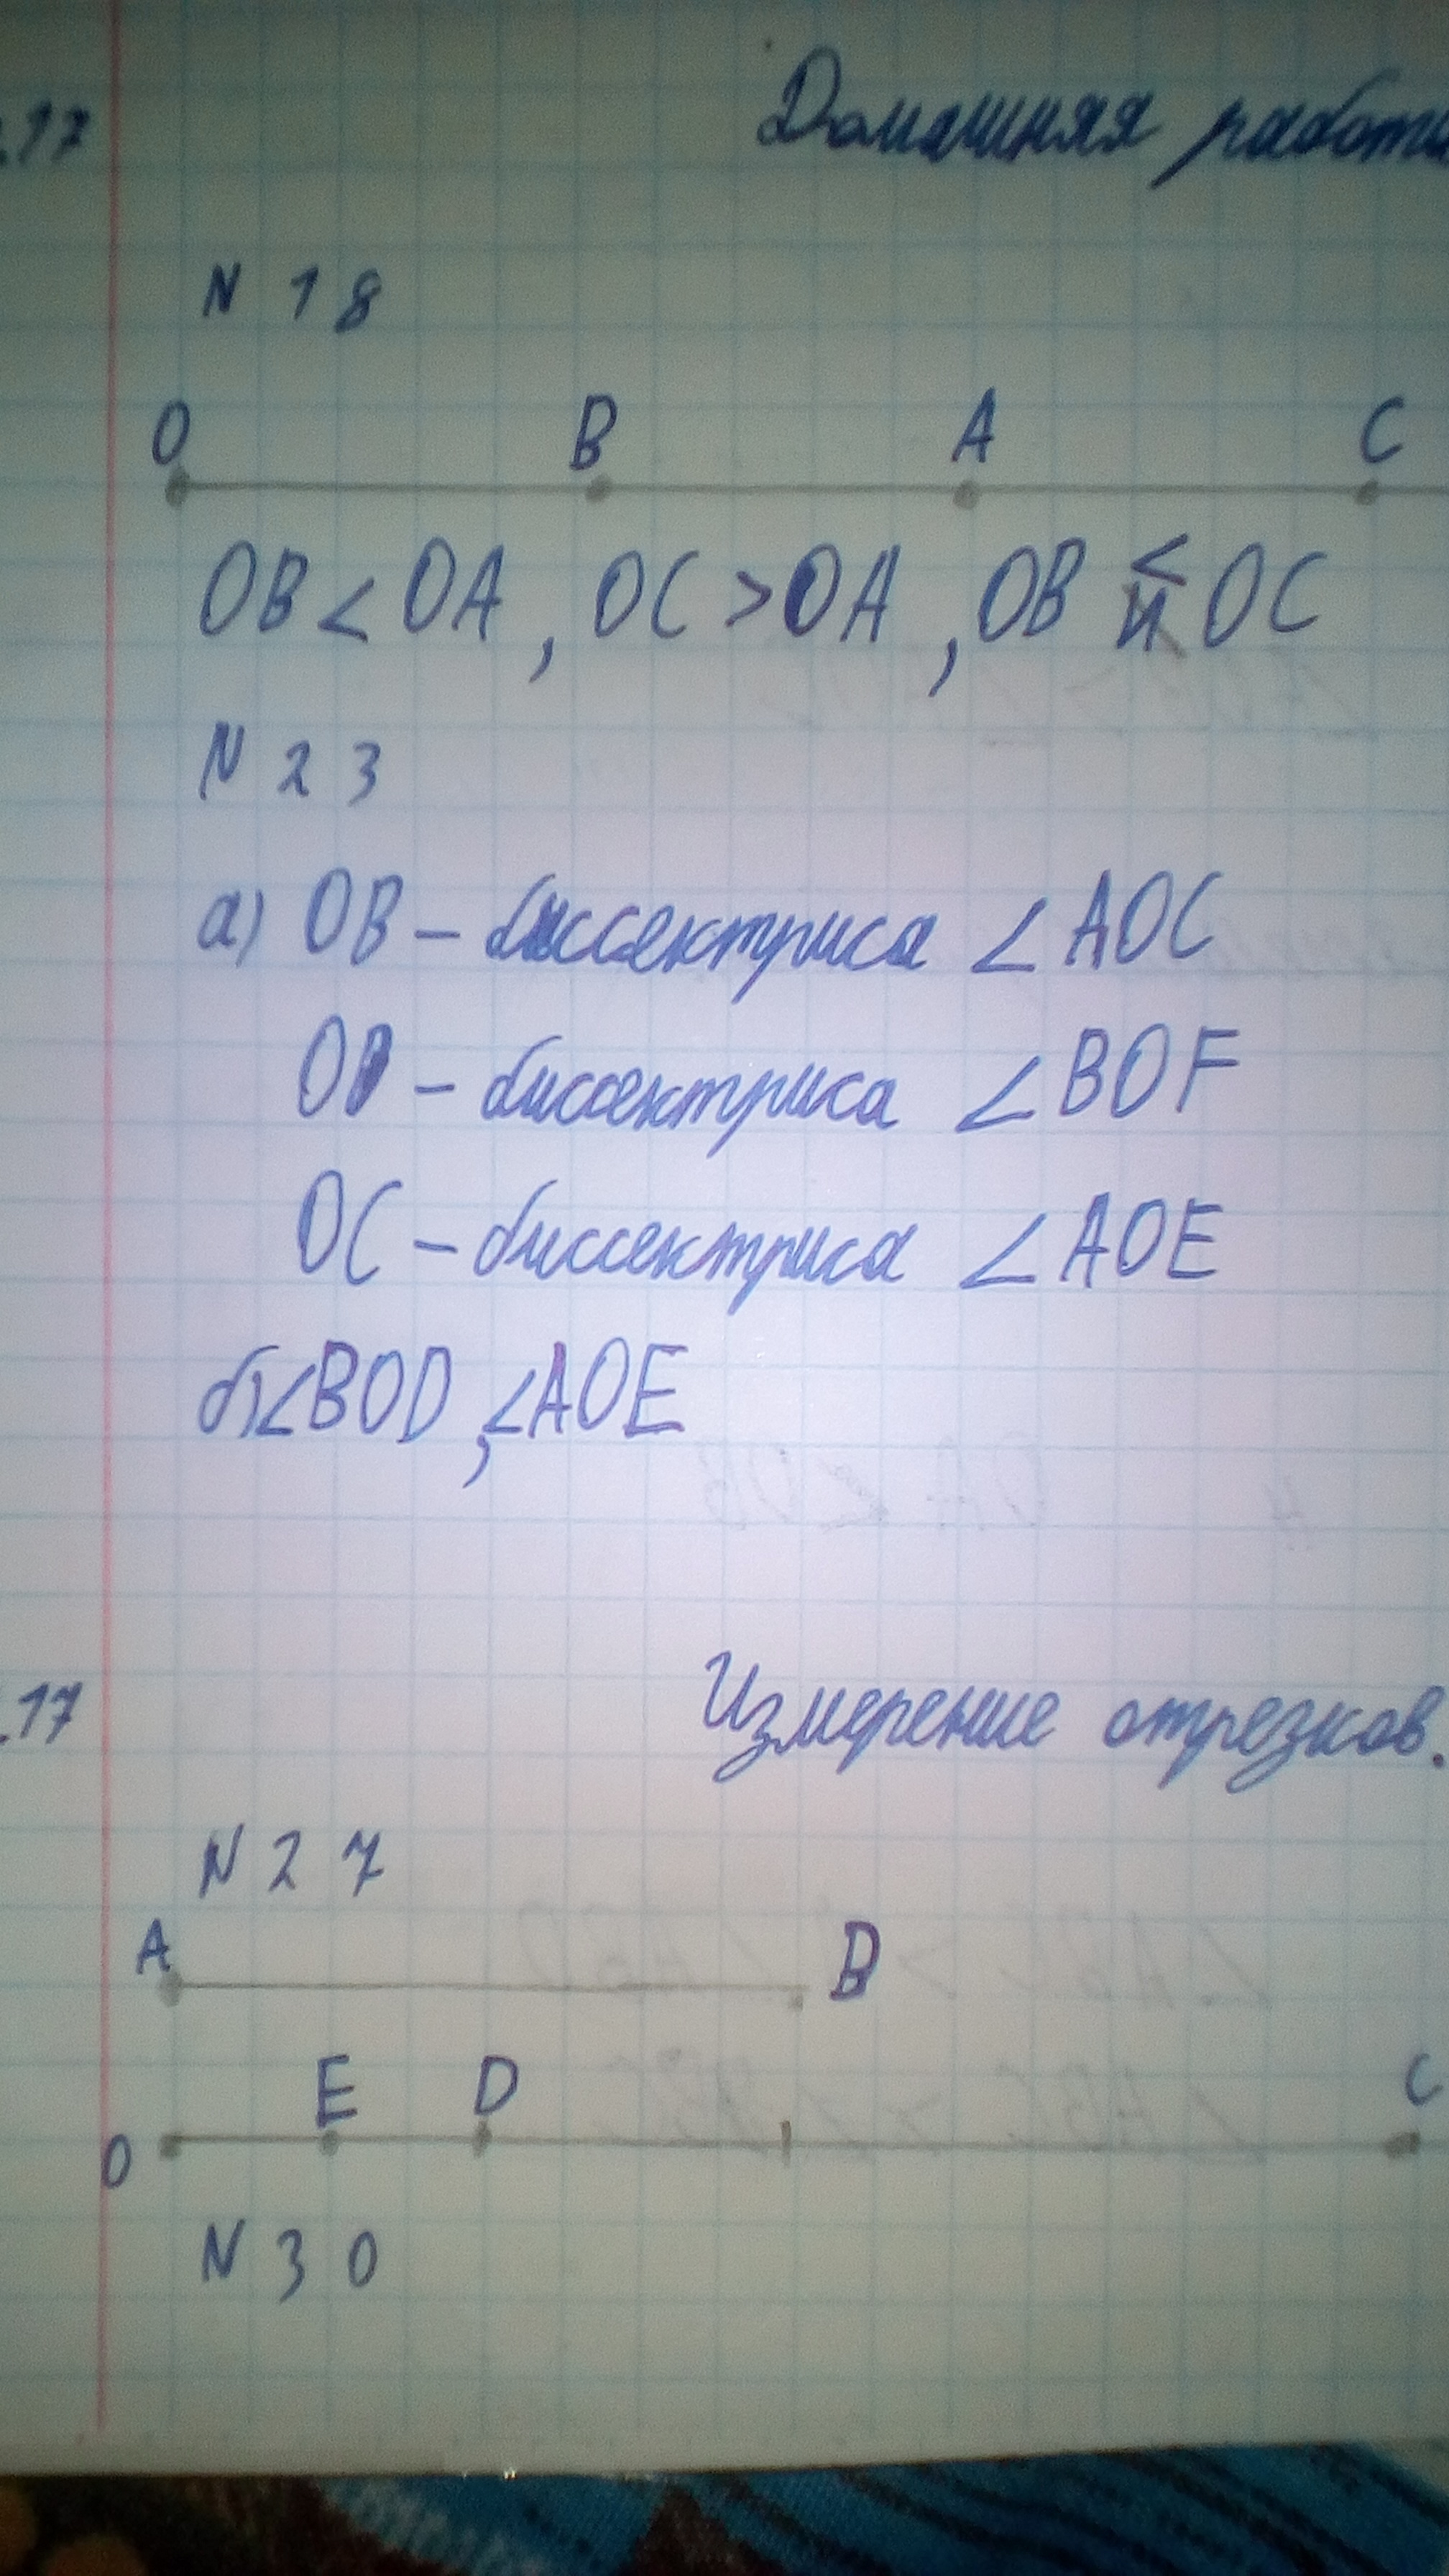 .17 Домашняя работа
N 18
O B A C
OB < OA, OC > OA, OB < OC
N 23
а) OB – биссектриса ∠AOC
OD – биссектриса ∠BOF
OC – биссектриса ∠AOE
б) ∠BOD, ∠AOE
.17 Измерение отрезков.
N 27
A B
O E D C
N 30